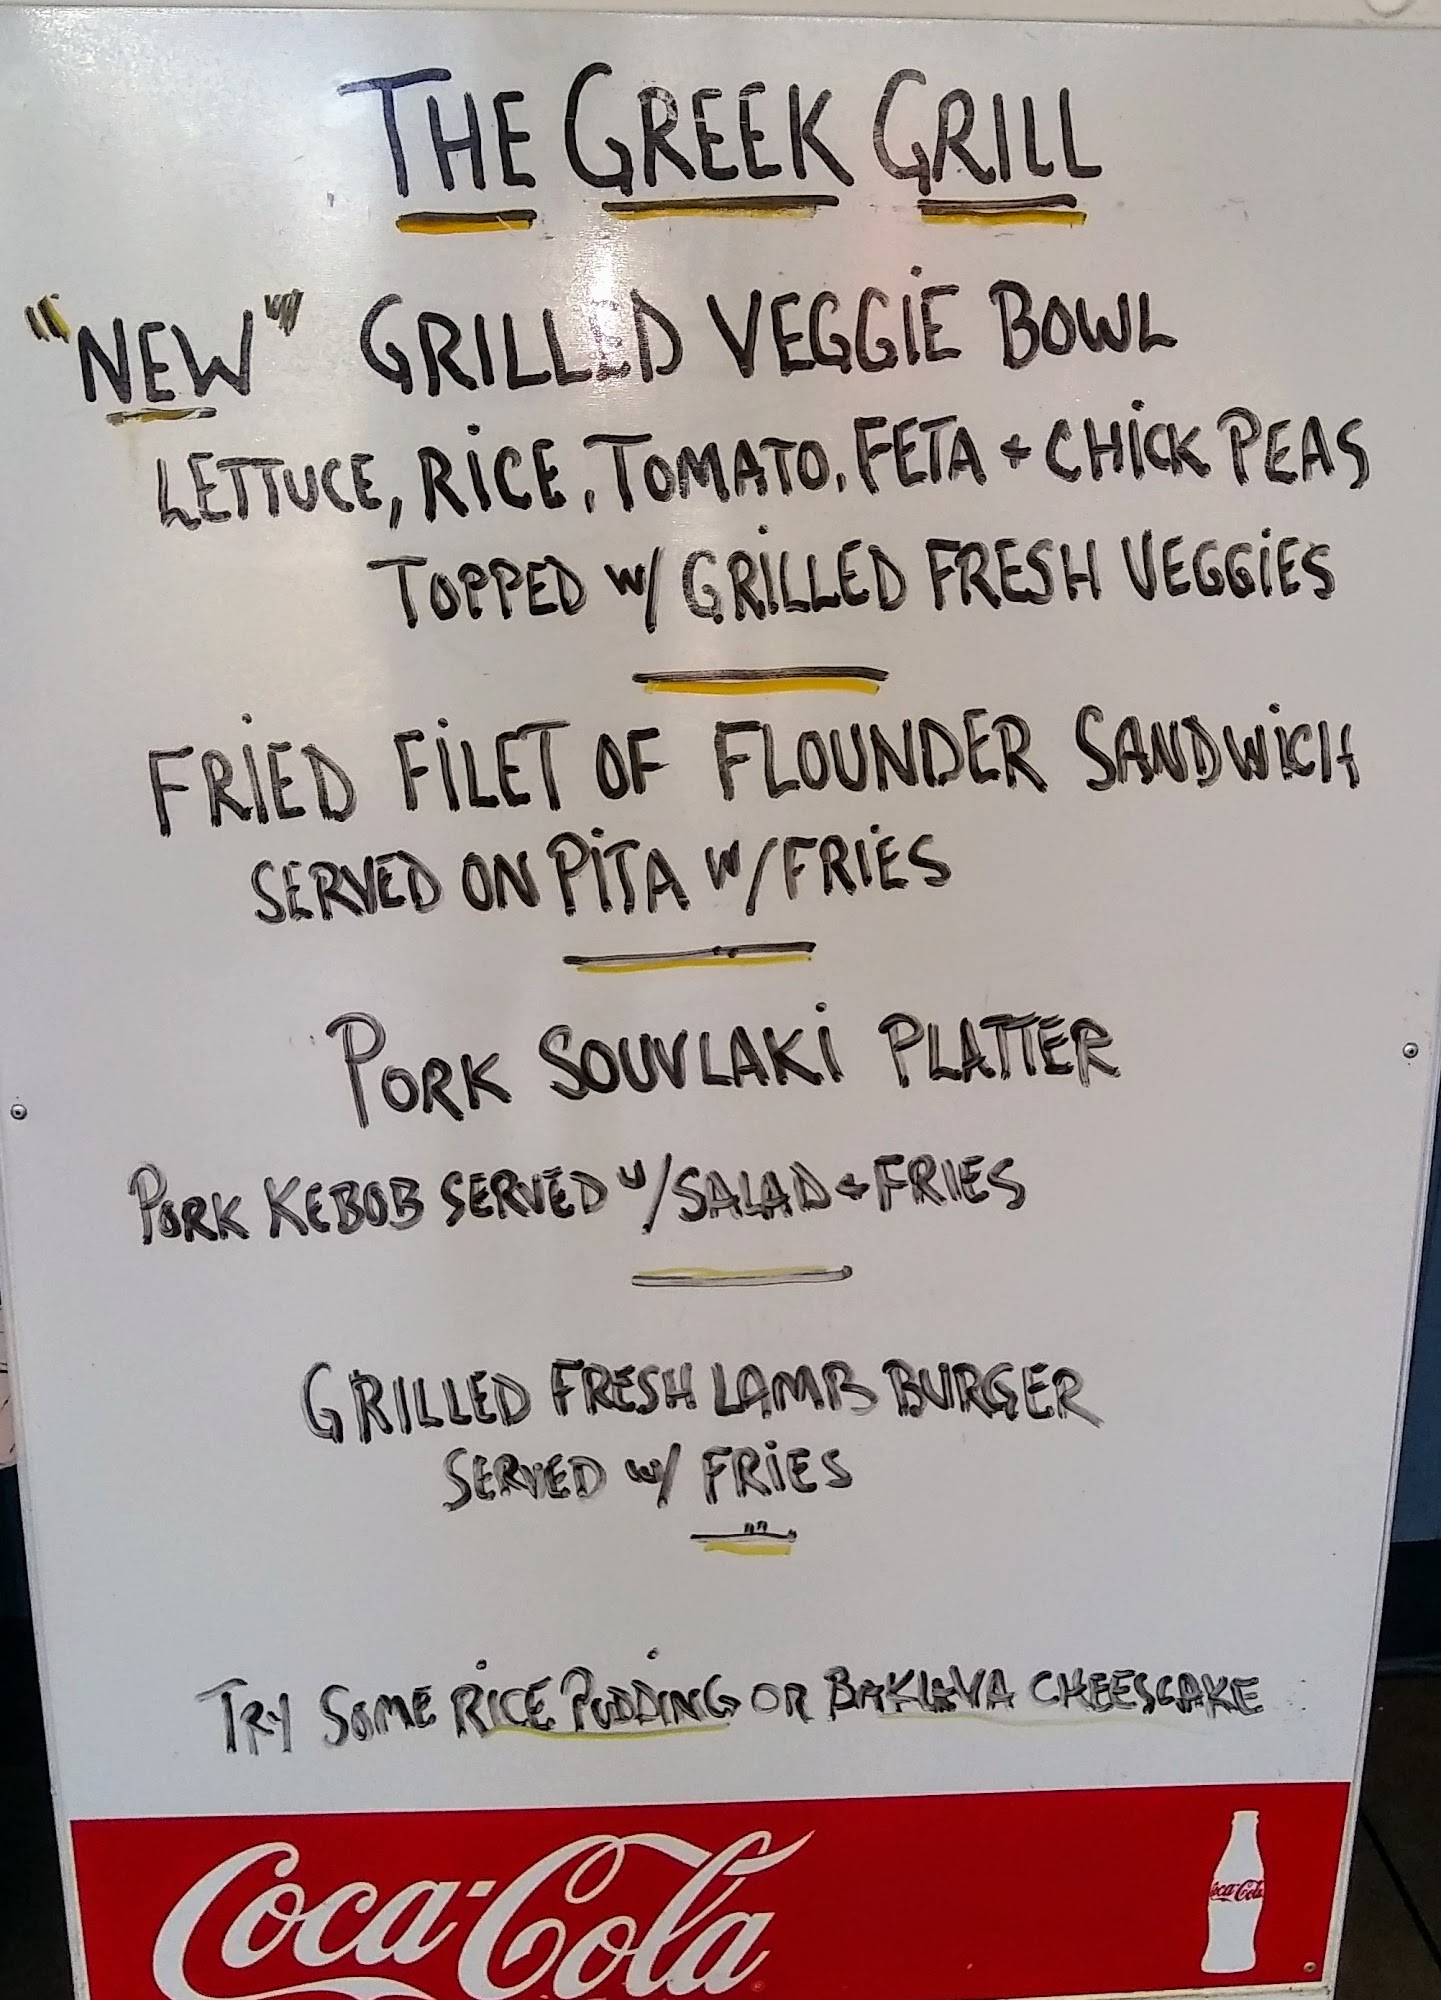 THE GREEK GRILL
"NEW" GRILLED VEGGIE BOWL
LETTUCE, RICE, TOMATO, FETA + CHICK PEAS
TOPPED W/ GRILLED FRESH VEGGIES
FRIED FILET OF FLOUNDER SANDWICH
SERVED ON PITA W/FRIES
PORK SOUVLAKI PLATTER
PORK KEBOB SERVED W/SALAD + FRIES
GRILLED FRESH LAMB BURGER
SERVED W/ FRIES
TRY SOME RICE PUDDING OR BAKLAVA CHEESCAKE
Coca-Cola
Coca-Cola